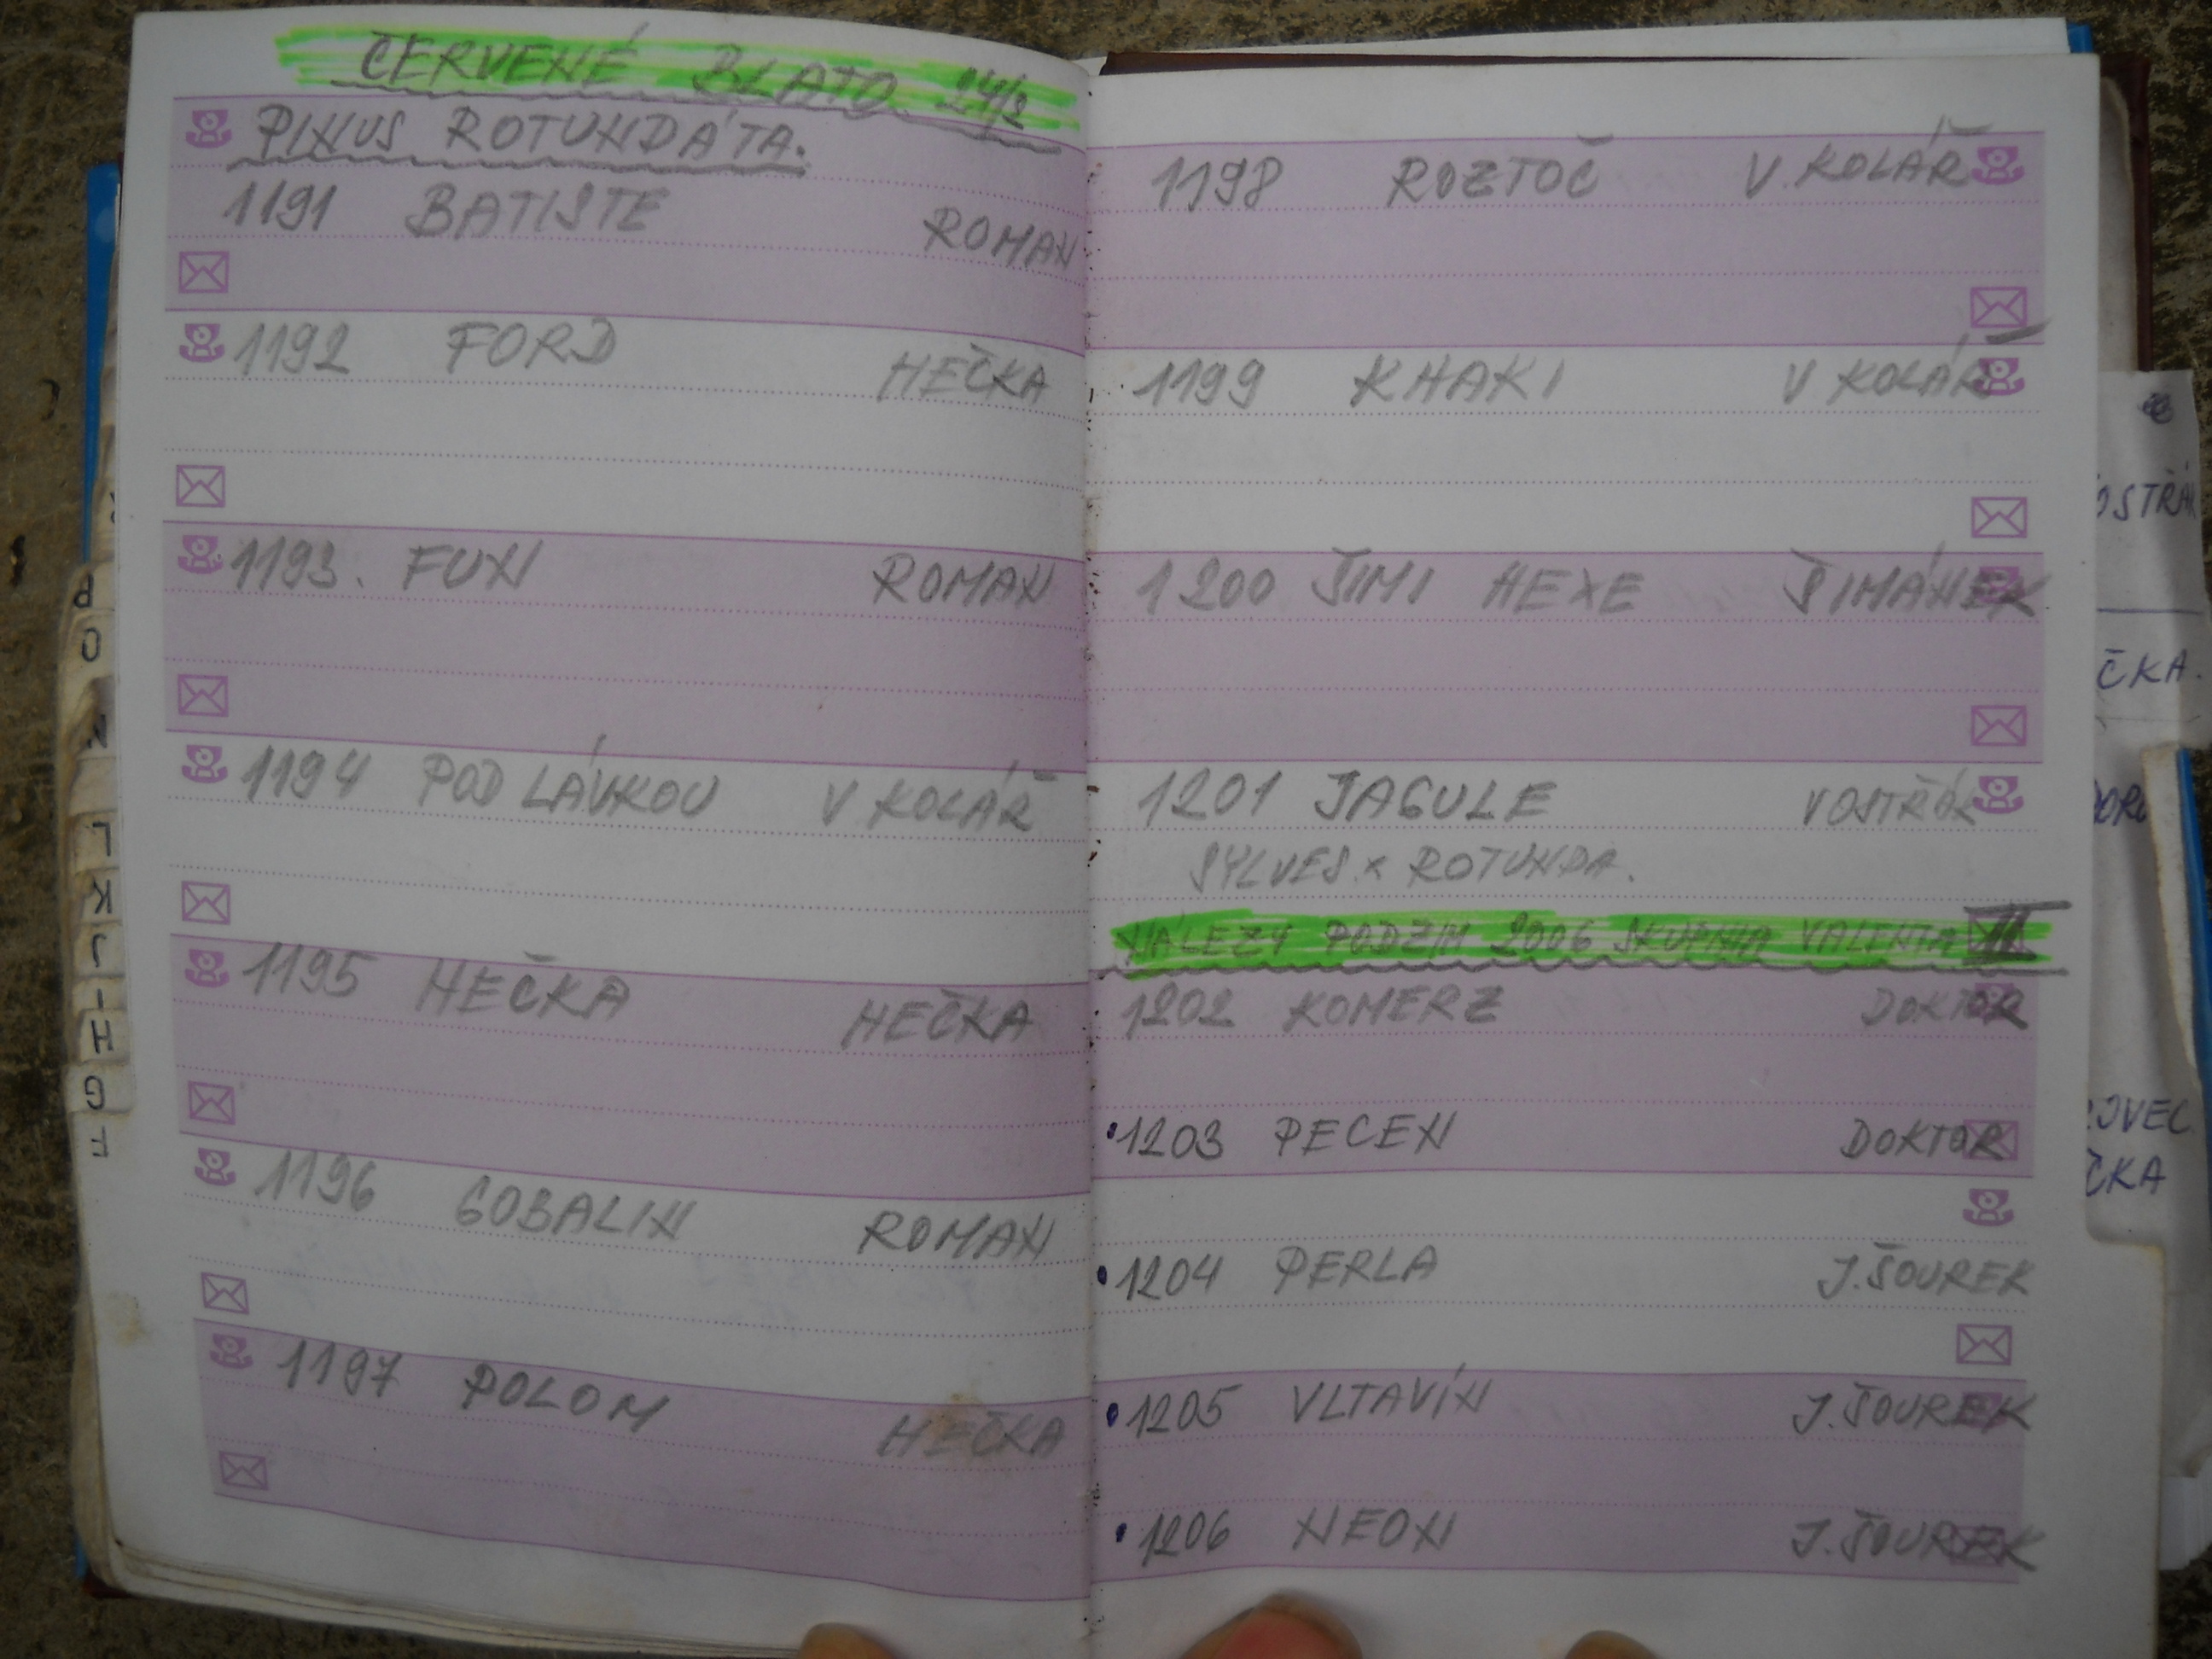 ČERVENÉ BLATO 24/2
PINUS ROTUNDÁTA.
1191 BATISTE ROMAN
1192 FORD HEČKA
1193. FUN ROMAN
1194 POD LÁVKOU V KOLÁŘ
1195 HEČKA HEČKA
1196 GOBALIN ROMAN
1197 POLOM HEČKA
1198 ROZTOČ V. KOLÁŘ
1199 KHAKI V KOLÁŘ
1200 ŠIMI HEXE ŠIMÁNEK
1201 JAGULE VOSTŘÁK
SYLVES. x ROTUNDA.
NÁLEZY PODZIM 2006 SKUPINA VALENTA
1202 KOMERZ DOKTOR
1203 PECEN DOKTOR
1204 PERLA J. ŠOUREK
1205 VLTAVÍN J. ŠOUREK
1206 NEON J. ŠOUREK
P
O
N
L
K
J
I
H
G
ČKA.
ČKA